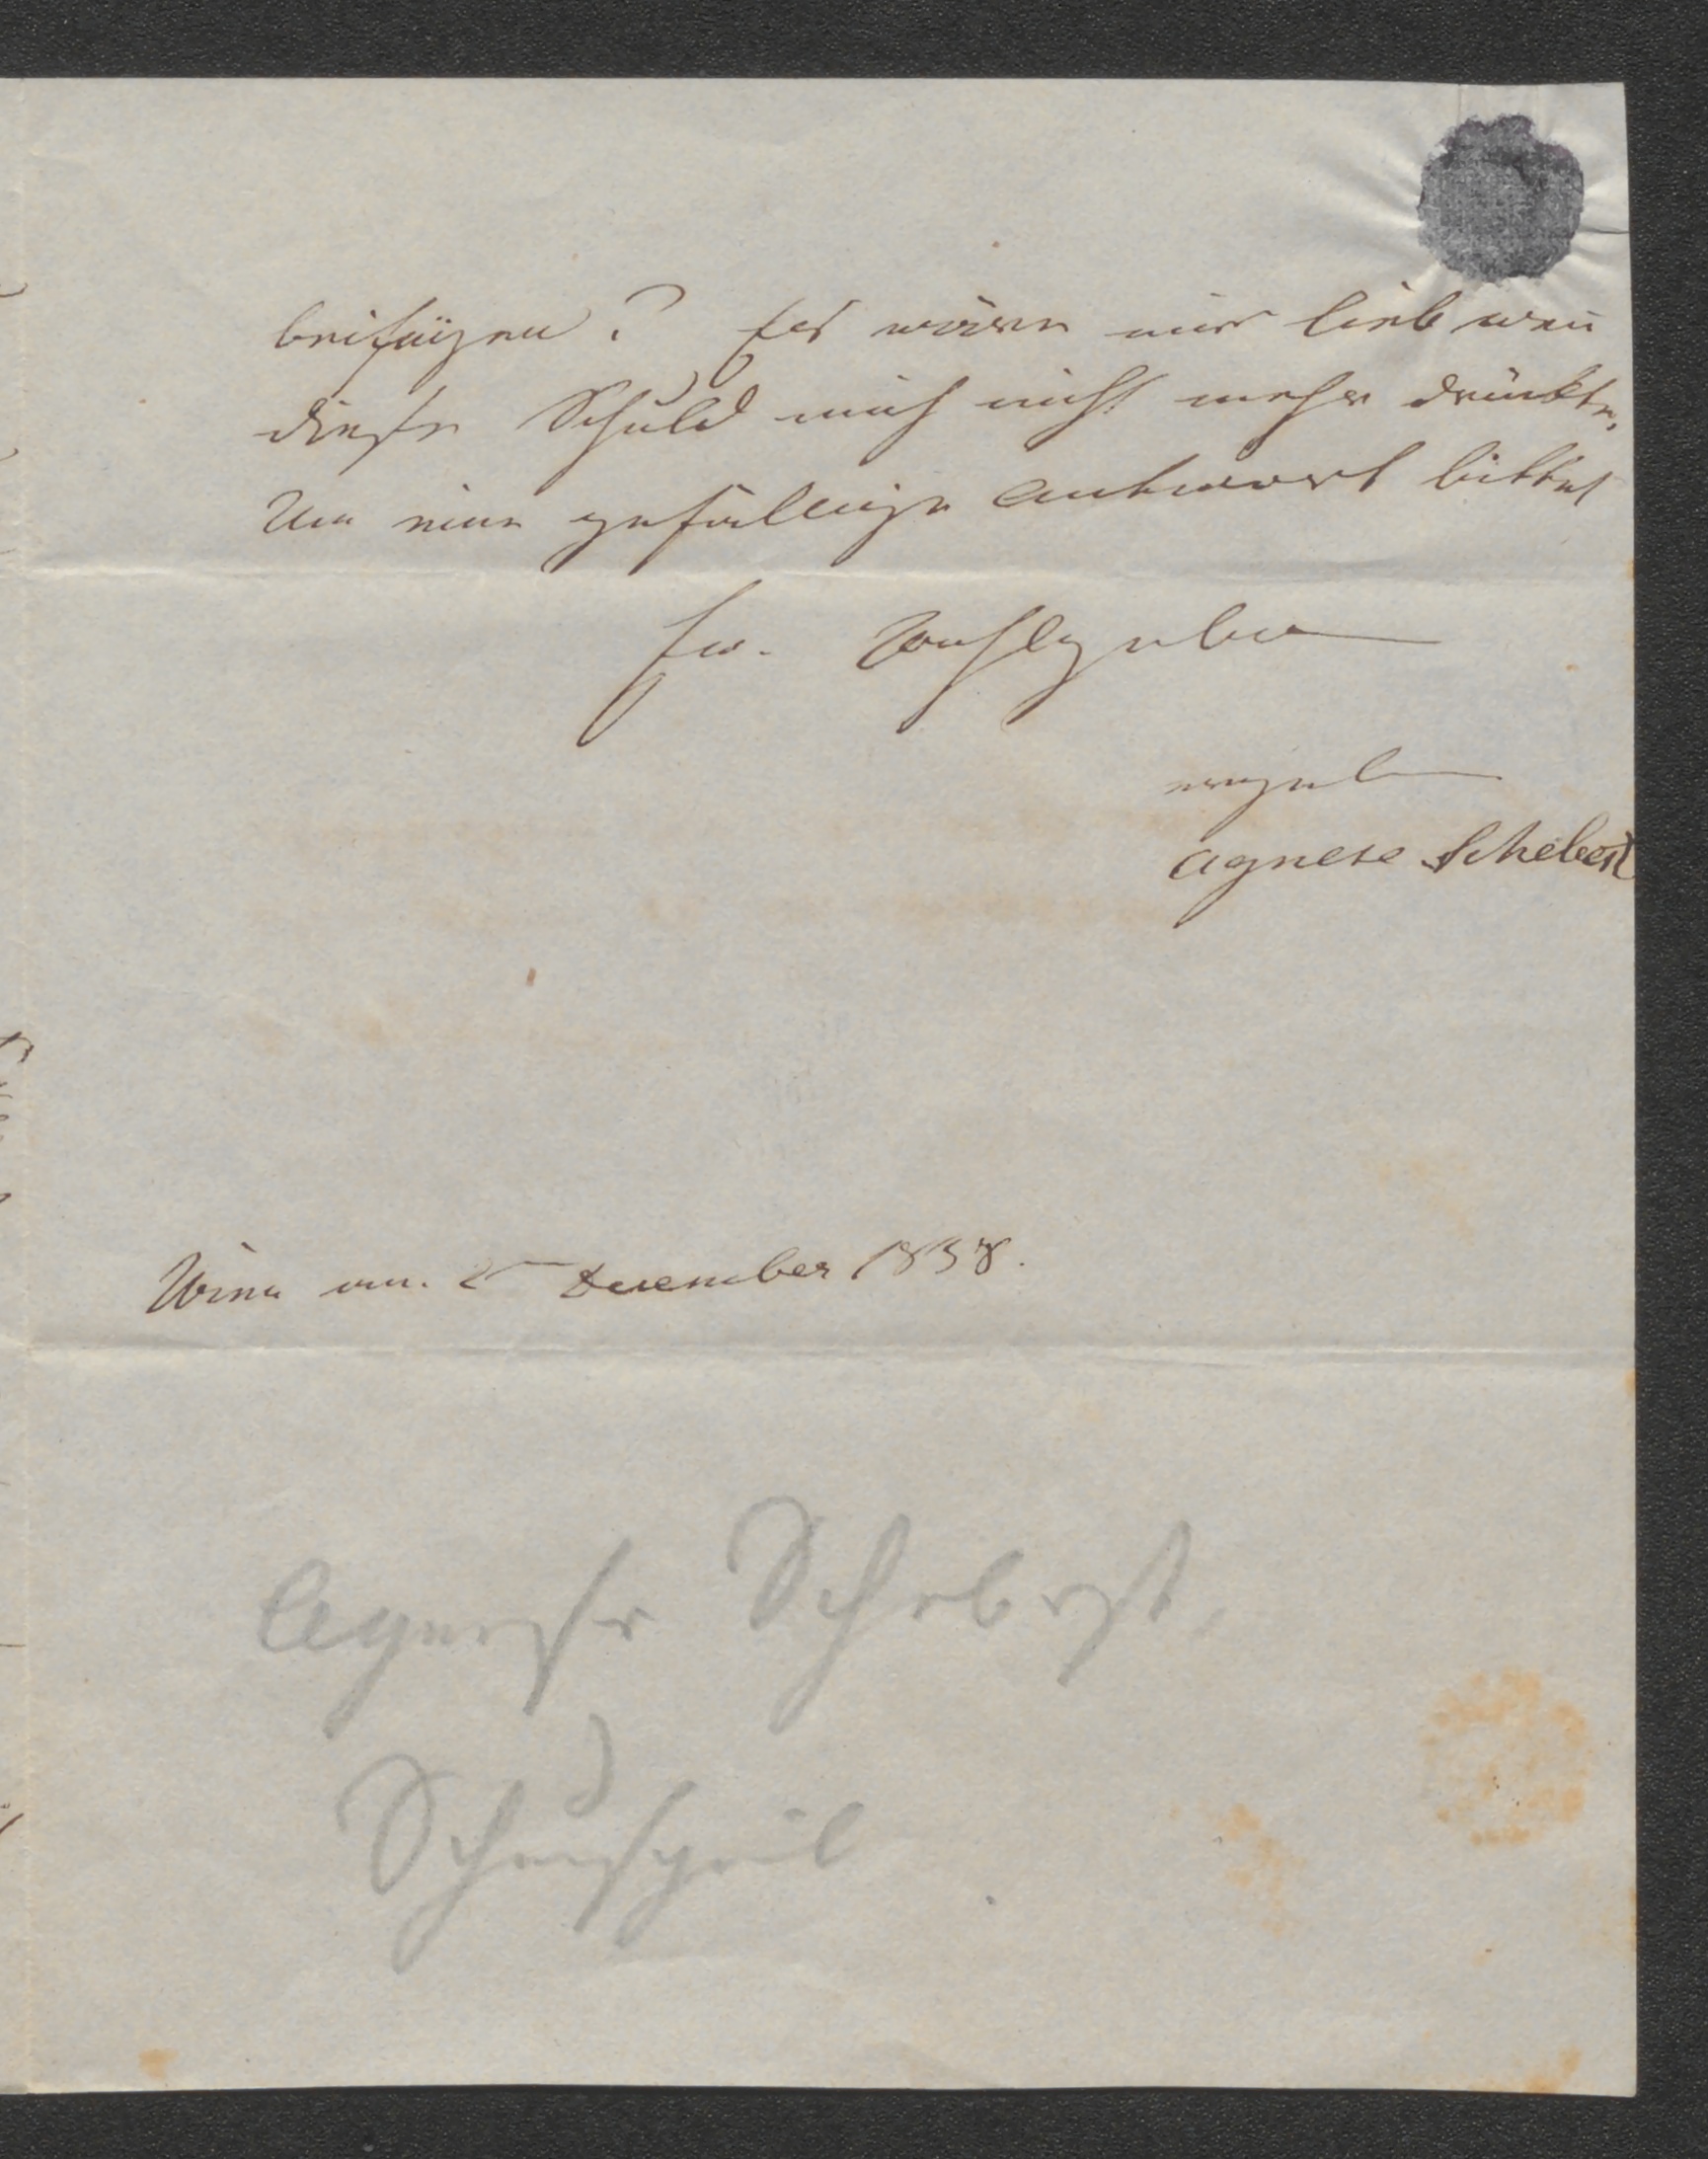 beifügen? Es wäre mir lieb wen̄
diese Schuld mich nicht mehr drückte,
Um eine gefällige Antwort bittet
Ew. Wohlgebor
ergeb
Agnese Schebest
Wien am. 2 Decemb­er 1838.
Agnese Schebest.
Schauspiel